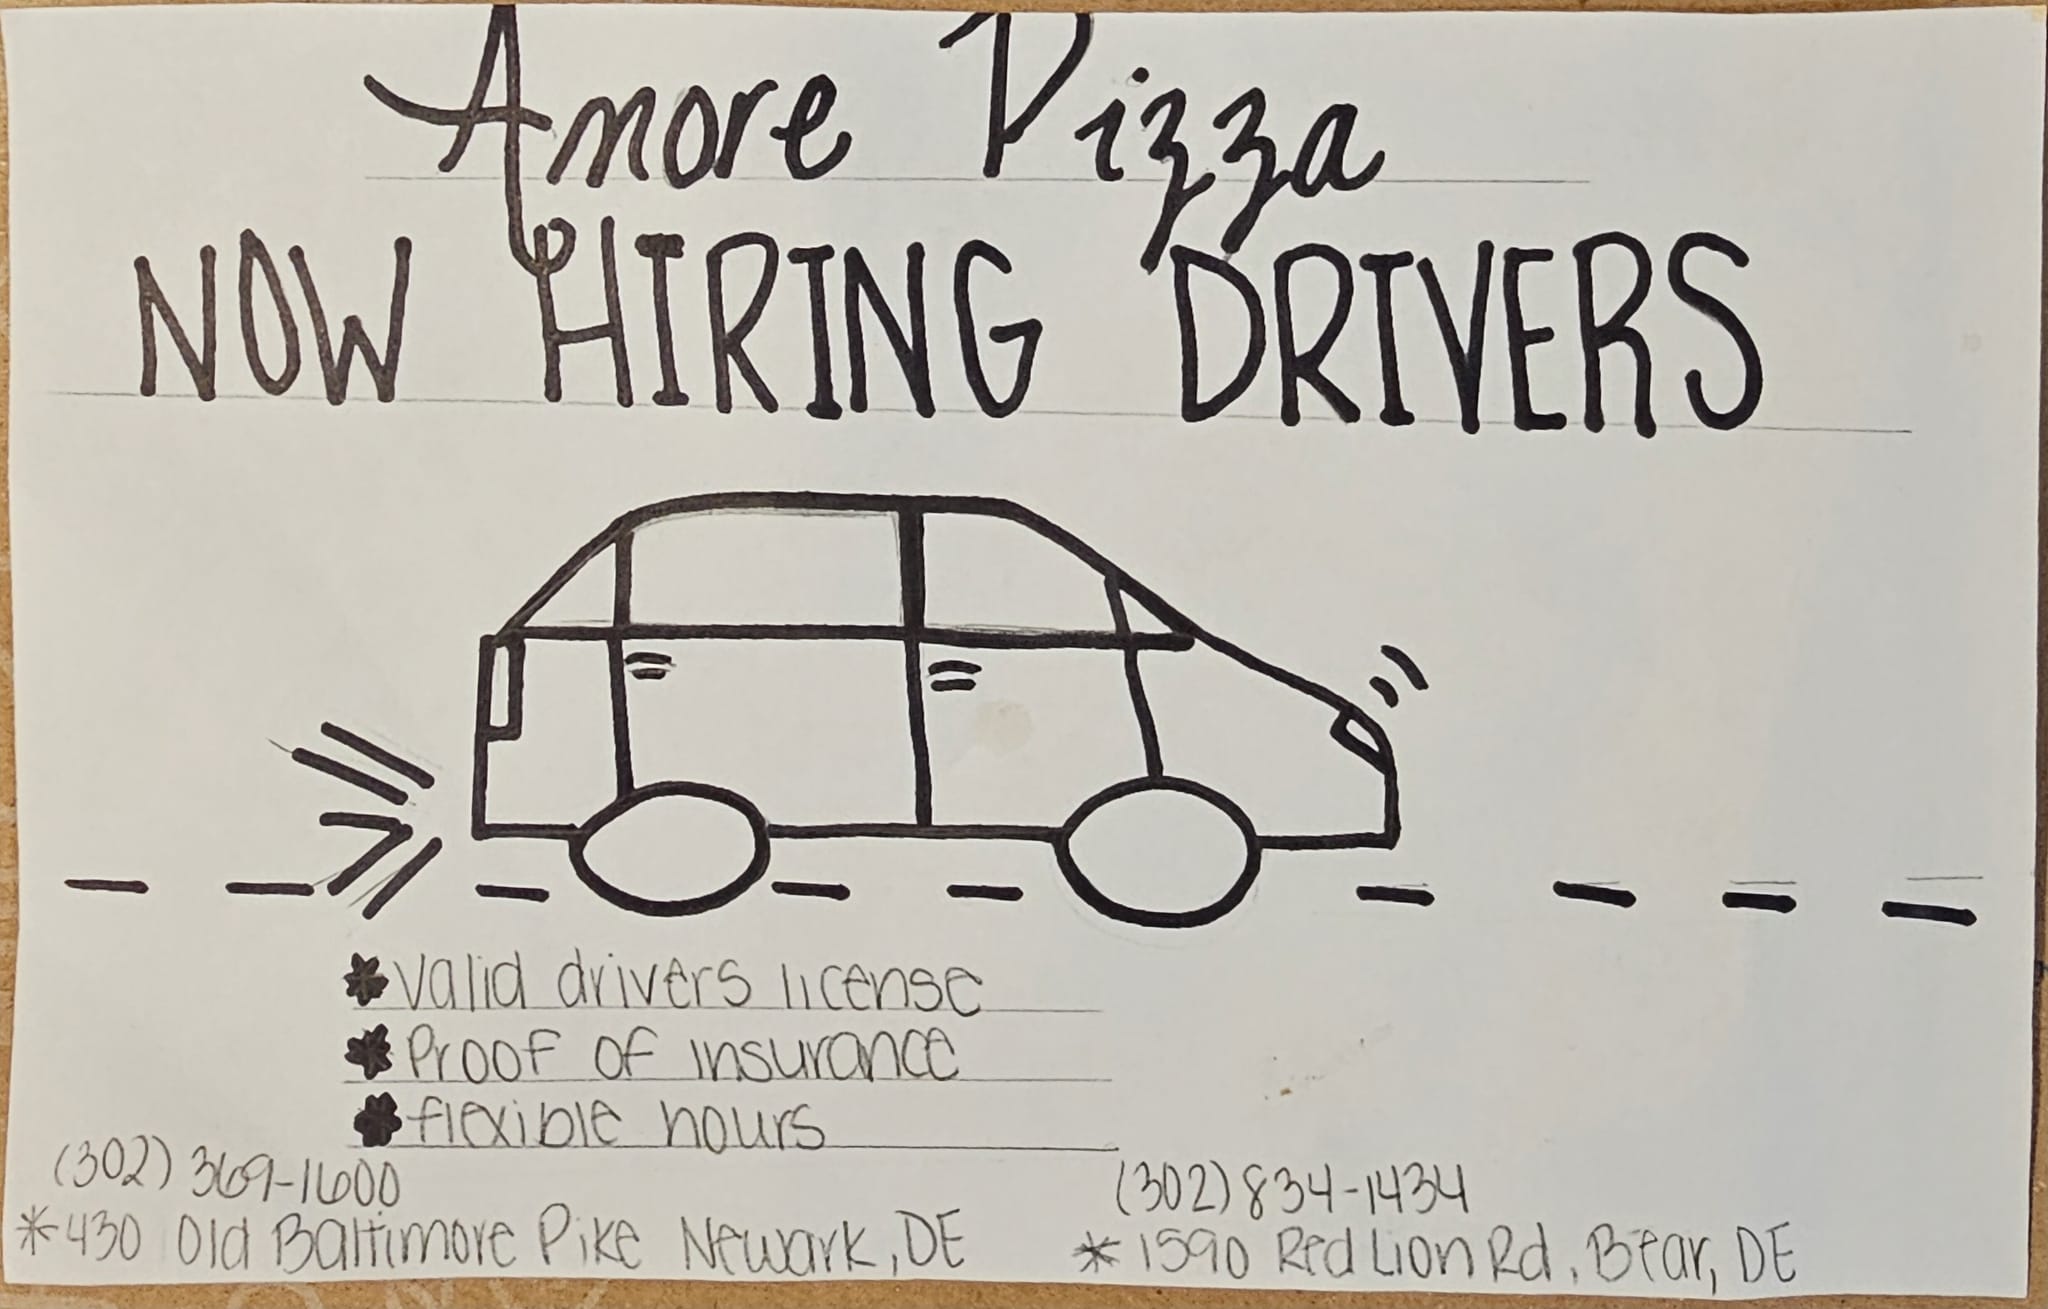 Amore Pizza
NOW HIRING DRIVERS
valid drivers license
Proof of insurance
flexible hours
(302) 369-1600
*430 Old Baltimore Pike Newark, DE
(302) 834-1434
*1590 Red Lion Rd, Bear, DE